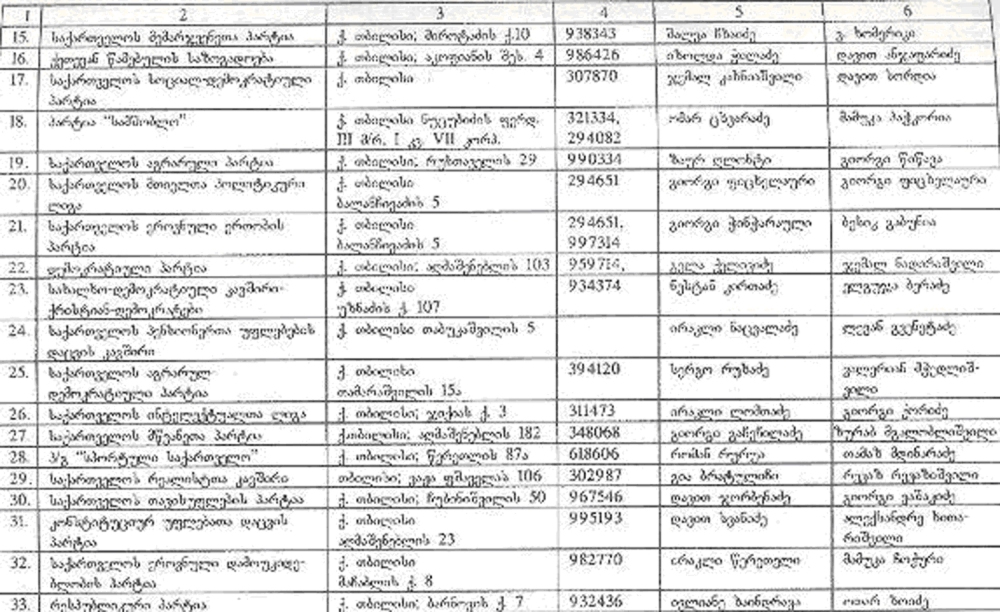 1 2 3 4 5 6
15. საქართველოს მემარჯვენეთა პარტია ქ. თბილისი; ქ.10 938343 შალვა
16. ქეთევან წამებულის საზოგადოება ქ. თბილისი; აკოფიანის შეს. 4 986426 იზოლდა დავით ანჯაფარიძე
17. საქართველოს სოციალ-დემოკრატიული ქ. თბილისი 307870 ჯემალ კახნიაშვილი დავით
პარტია
18. პარტია "სამშობლო" ქ. თბილისი ნუცუბიძის ფერდ. 321334, ომარ ცხვარაძე მამუკა პაჭკორია
III მ/რ, I კვ. VII კორპ. 294082
19. საქართველოს აგრარული პარტია ქ. თბილისი; რუსთაველის 29 990334 ზაურ ღლონტი გიორგი წიწავა
20. საქართველოს მთიელთა პოლიტიკური ქ. თბილისი 294651 გიორგი ფიცხელაური გიორგი ფიცხელაური
ლიგა ბალანჩივაძის 5
21. საქართველოს ეროვნული ერთობის ქ. თბილისი 294651, გიორგი ჭინჭარაული ბესიკ გაბუნია
პარტია ბალანჩივაძის 5 997314
22. დემოკრატიული პარტია ქ. თბილისი; აღმაშენებლის 103 959714, გელა ჯემალ ნადარაშვილი
23. სახალხო-დემოკრატიული კავშირი- ქ. თბილისი 934374 ნესტან კირთაძე ელგუჯა ბერაძე
ქრისტიან-დემოკრატები უზნაძის ქ. 107
24. საქართველოს პენსიონერთა უფლებების ქ. თბილისი თაბუკაშვილის 5 ირაკლი ნაცვალაძე ლევან გვენეტაძე
დაცვის კავშირი
25. საქართველოს აგრარულ- ქ. თბილისი 394120 სერგო რუხაძე ვალერიან მჭედლიშ-
დემოკრატიული პარტია თამარაშვილის 15ა ვილი
26. საქართველოს ინტელექტუალთა ლიგა ქ. თბილისი; ჯიქიას ქ. 3 311473 ირაკლი ლომთაძე გიორგი ქორიძე
27. საქართველოს მწვანეთა პარტია ქ.თბილისი; აღმაშენებლის 182 348068 გიორგი გაჩეჩილაძე ზურაბ მგალობლიშვილი
28. პ/გ "სპორტული საქართველო" ქ. თბილისი; წერეთლის 87ა 618606 რომან რურუა თამაზ მდინარაძე
29. საქართველოს რეალისტთა კავშირი თბილისი; ვაჟა ფშაველას 106 302987 გია ბრატულიჩი რევაზ რევაზიშვილი
30. საქართველოს თავისუფლების პარტია ქ. თბილისი; ჩუბინიშვილის 50 967546 დავით ჯორბენაძე გიორგი ვაშაკიძე
31. კონსტიტუციურ უფლებათა დაცვის ქ. თბილისი 995193 დავით სვანაძე ალექსანდრე ხითა-
პარტია აღმაშენებლის 23 რიშვილი
32. საქართველოს ეროვნული დამოუკიდე- ქ. თბილისი 982770 ირაკლი წერეთელი მამუკა ჩოჭური
ბლობის პარტია მაჩაბლის ქ. 8
33. რესპუბლიკური პარტია ქ. თბილისი; ბარნოვის ქ. 7 932436 ივლიანე ხაინდრავა ოთარ ზოიძე